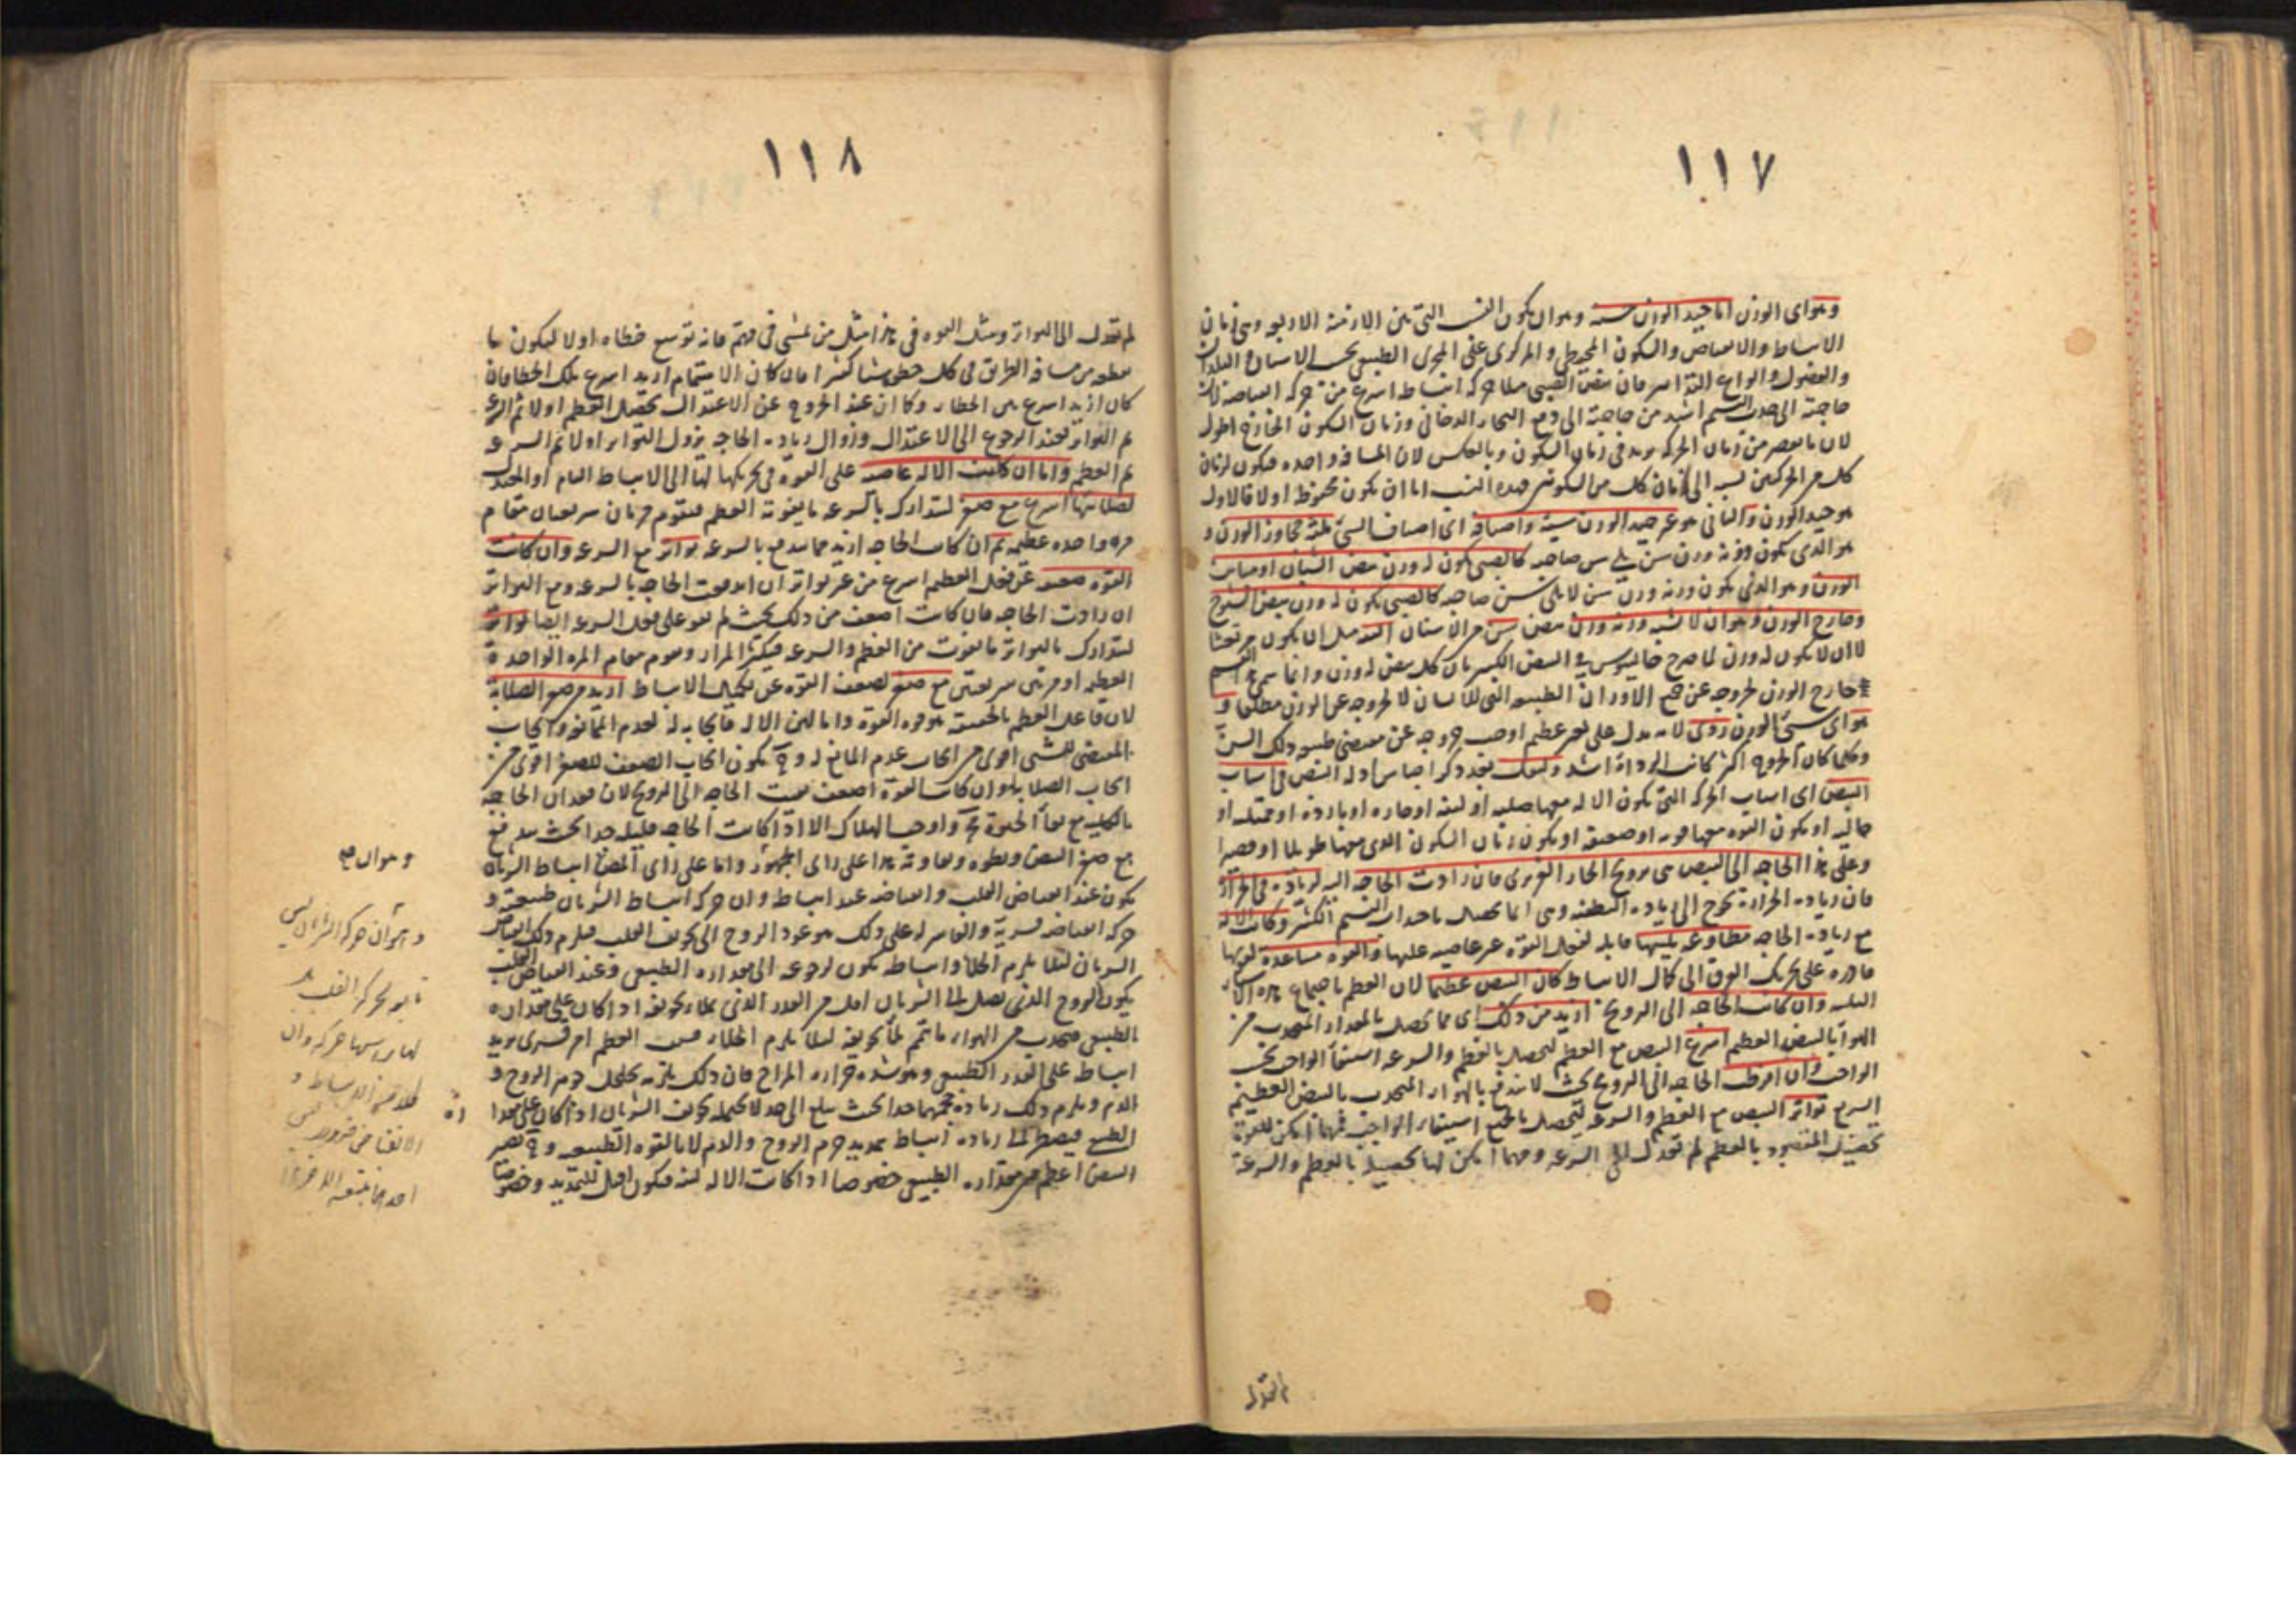 ١١٧
وهو اى الوزن اما جيد الوزن حسنه وهو ان يكون النسب التى بين الازمنة الاربعه وهى زمان
الانبساط والانقباض والسكون المحيطى والمركزى على المجرى الطبيعى بحسب الاسنان والبلدان
والفصول وانواع التدابير فان نبض الصبى مثلا حركة انبساطه اسرع من حركة انقباضه لان
حاجته الى جذب النسيم اشد من حاجته الى دفع البخار الدخانى وزمان السكون الخارج اطول
لان ما نقص من زمان الحركه يزيد فى زمان السكون وبالعكس لان المسافه واحده فيكون لزمان
كل من الحركتين نسبه الى زمان كل من السكونين فهذه النسب اما ان يكون محفوظه اولا فالاول
هو جيد الوزن والثانى هو غير جيد الوزن سيئه واصنافه اى اصناف السيئ ثلثه مجاوز الوزن و
هو الذى يكون وزنه وزن سن يلى سن صاحبه كالصبى يكون له وزن نبض الشبان او مباين
الوزن وهو الذى يكون وزنه وزن سن لا يلى سن صاحبه كالصبى يكون له وزن نبض الشيوخ
وخارج الوزن وهو ان لا يشبه وزنه وزن نبض سن من الاسنان البته مثل ان يكون مرتعشا
لا ان لا يكون له وزن لما صرح جالينوس فى النبض الكبير بان كل نبض له وزن وانما سمى هذا القسم
خارج الوزن لخروجه عن جميع الاوزان الطبيعيه التى للانسان لا لخروجه عن الوزن مطلقا و
هو اى سيئ الوزن ردى لانه يدل على تغير عظيم اوجب خروجه عن مقتضى طبيعه ذلك السن
وكلما كان الخروج اكثر كانت الرداءة اشد ولنقل بعد ذكر اجناس ادلة النبض فى اسباب
النبض اى اسباب الحركه التى يكون الاله معها صلبه او لينه او حاره او بارده او ممتليه او
خاليه او يكون القوه معها قويه او ضعيفه او يكون زمان السكون الذى معها طويلا او قصيرا
وعلى هذا الحاجه الى النبض هى ترويح الحار الغريزى فان زادت الحاجه اليه لزياده فى الحرارة
فان زياده الحرارة تحوج الى زياده التطفيه وهى انما تحصل باحداث النسيم الكثير وكانت الاله
مع زياده الحاجه مطاوعه بلينها قابله لفعل القوه غير عاصيه عليها والقوه مساعدة لقوتها
قادره على تحريك العرق الى كمال الانبساط كان النبض عظيما لان العظم باجتماع هذه الاسباب
الثلثه وان كانت الحاجه الى الترويح ازيد من ذلك اى مما يحصل بالمقدار المجذوب من
الهواء بالنبض العظيم اسرع النبض مع العظم لتحصل بالعظم والسرعه استيفاء الواجب
الواجب وان افرطت الحاجه الى الترويح بحيث لا يندفع بالهواء المجذوب بالنبض العظيم
السريع تواتر النبض مع العظم والسرعه ليحصل بالجميع استيفاء الواجب فمهما امكن للقوة
تحصيل المقصود بالعظم لم تعدل الى السرعه ومهما امكن لها تحصيله بالعظم والسرعة
لم تعدل
١١٨
لم تعدل الى التواتر ومثل القوه فى هذا مثل من يمشى فى مهم فانه توسع خطاه اولا ليكون ما
يقطعه من مسافه الطريق فى كل خطوه شيئا كثيرا فان كان الاهتمام ازيد اسرع بتلك الخطا فان
كان ازيد اسرع بين الخطا، وكما ان عند الخروج عن الاعتدال تحصل العظم اولا ثم السرعه
ثم التواتر فعند الرجوع الى الاعتدال وزوال زياده الحاجه يزول التواتر اولا ثم السرعه
ثم العظم واما ان كانت الاله عاصيه على القوه فى تحريكها لها الى الانبساط التام او المعتدل
لصلابتها اسرع مع صغر لتتدارك بالسرعه ما يفوته العظم فيقوم مرتان سريعتان مقام
مره واحده عظيمه ثم ان كانت الحاجه ازيد مما يندفع بالسرعه تواتر مع السرعه وان كانت
القوه ضعيفه عن فعل العظم اسرع من غير تواتر ان اندفعت الحاجه بالسرعه ومع التواتر
ان زادت الحاجه فان كانت اضعف من ذلك بحيث لم تقو على فعل السرعه ايضا تواتر
لتتدارك بالتواتر ما يفوت من العظم والسرعه فيكثر المرار ويقوم مقام المره الواحدة
العظيمه او مرتين سريعتين مع صغر لضعف القوه عن تكميل الانبساط ازيد من صغر الصلابة
لان فاعل العظم بالحقيقه هو قوة القوة واما لين الاله فايجابه له لعدم الممانعه وايجاب
المقتضى للشئ اقوى من ايجاب عدم المانع له و ح يكون ايجاب الضعف للصغر اقوى من
ايجاب الصلابه له وان كانت القوة اضعف
بالكليه مع بقاء الحيوة الا اذا كانت الحاجه قليله جدا بحيث يندفع
مع صغر النبض وبطوه وتفاوته هذا على راى الجمهور واما على راى المص انبساط الشريان
يكون عند انقباض القلب وانقباضه عند انبساطه وان حركه انبساط الشريان طبيعيه و
حركه انقباضه قسريه والقاسر له على ذلك هو عود الروح الى تجويف القلب فيلزم ذلك انقباض
الشريان لئلا يلزم الخلاء وانبساطه يكون لرجوعه الى مقداره الطبيعى وعند انقباض القلب
يكون الروح الذى يصل الى الشريان اقل من القدر الذى يملا تجويفه اذا كان على مقداره
الطبيعى فيجذب من الهواء ما يتم لملأ تجويفه لئلا يلزم الخلاء العظم امر قسرى يزيد
انبساطه على القدر الطبيعى وهو شده حراره المزاج فان ذلك يلزمه تخلخل جرم الروح و
الدم ويلزم ذلك زياده حجمهما جدا بحيث يبلغ الى حد لا يحتمله تجويف الشريان اذا كان على مقداره
الطبيعى فيضطر الى زياده انبساط بتمديد جرم الروح والدم لا بالقوه الطبيعيه و ح يصير
النبض اعظم من مقداره الطبيعى خصوصا اذا كانت الاله لينه فيكون اقبل للتمديد وخصوصا
وهو ان
وهو ان حركة الشريان ليس
تابعه لحركه القلب